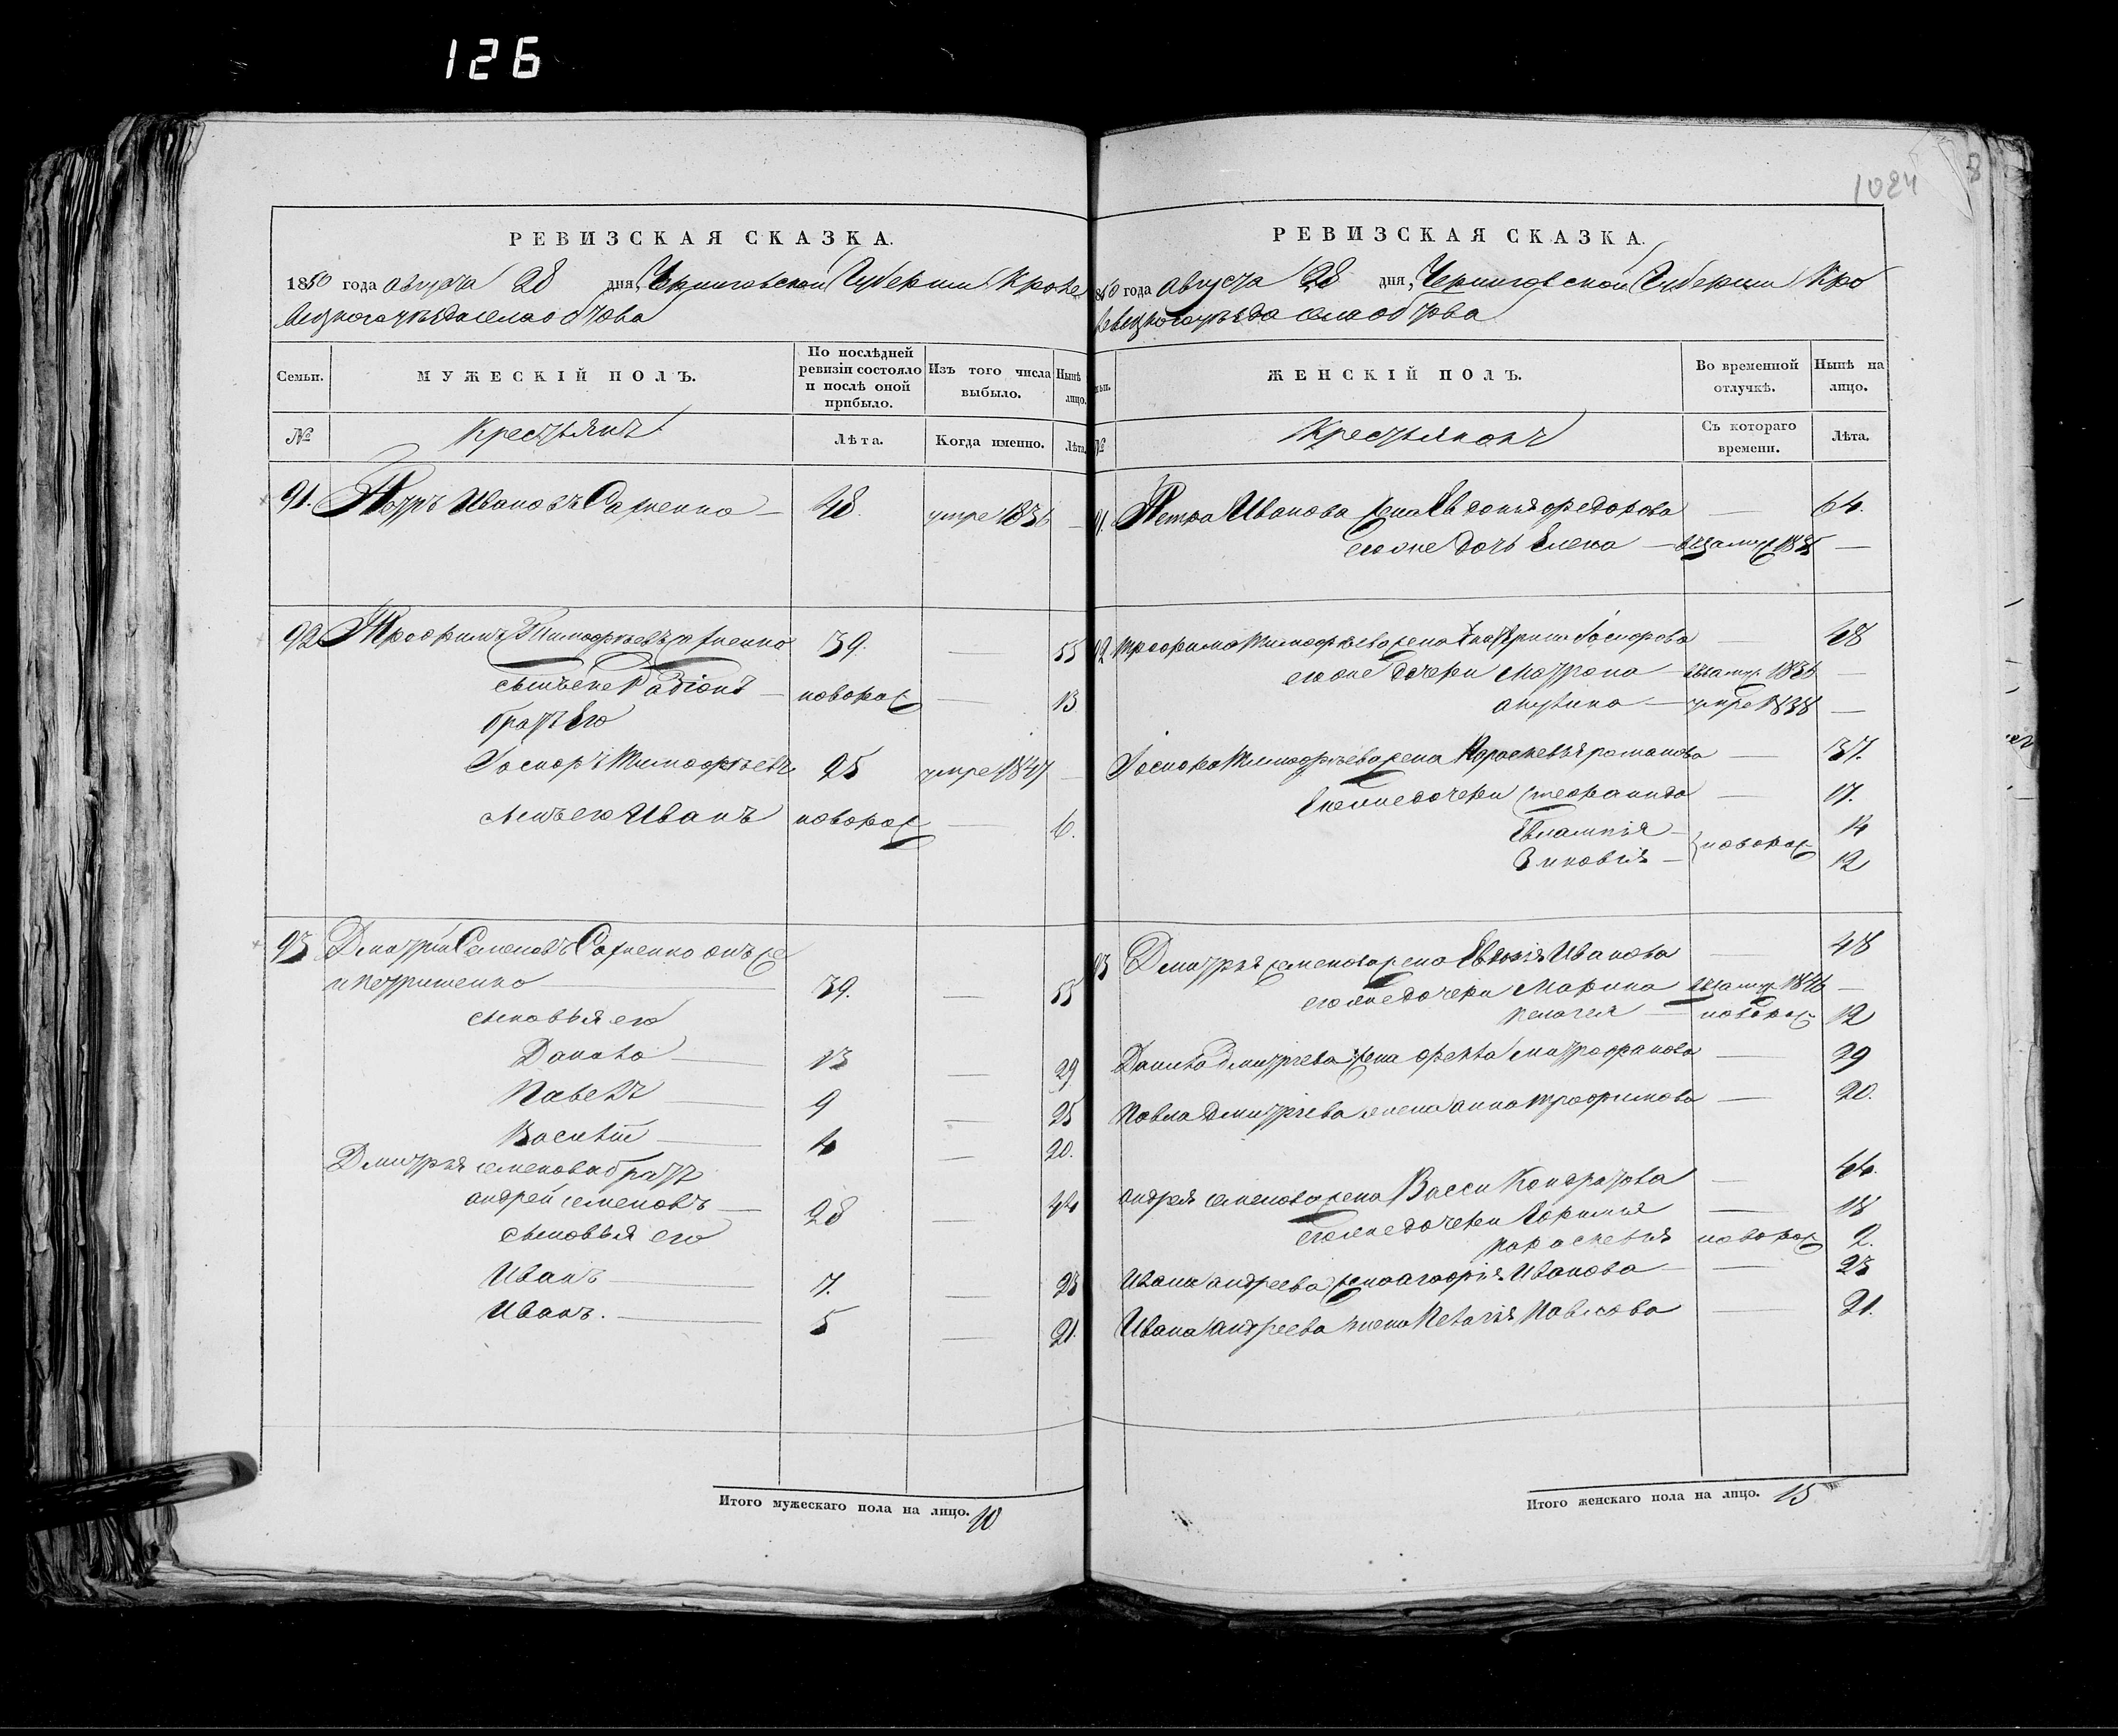 126
РЕВИЗСКАЯ СКАЗКА.
1850 года августа 28 дня, Черниговской Губернии Кроле
вецкого уезда села обтова
Семьи.
МУЖЕСКІЙ ПОЛЪ.
По послѣдней ревизіи состояло и послѣ оной прибыло.
Изъ того числа выбыло.
Нынѣ лицо.
№
Крестьянъ
Лѣта.
Когда именно.
Лѣта
91. Петръ Ивановъ Сахненко — 48. умре 1836 —
92 Трофимъ Тимофѣевъ сахненко 39. — 55
сынъ его Радіонъ — новорож — 13
братъ Его
Тимофѣевъ 25 умре 1847 —
сынъ его Иванъ новорож — 6.
93 Дмитрій Семеновъ Сахненко онъ же
и петрищенко — 39. — 55
сыновья его
Данило — 13 — 29
Павелъ — 9 — 25
Василій — 4 — 20.
Дмитрія семенова братъ
андрей семеновъ — 28 — 44
сыновья его
Иванъ — 7. — 23
Иванъ. — 5 — 21.
Итого мужескаго пола на лицо. 10
1024
8
РЕВИЗСКАЯ СКАЗКА.
850 года августа 28 дня, Черниговской Губернии Кро
левецкого уезда села обтова
ЖЕНСКІЙ ПОЛЪ.
Во временной отлучкѣ.
Нынѣ на лицо.
№
Крестьянокъ
Съ котораго времени.
Лѣта.
91. Петра Иванова жена Евдокія федорова — 64.
его же дочь Елена —
92 трофима Тимофѣева жена — 48
его же дочери Матрона — —
— умре 1838 —
Тимофѣева жена Параскевья романова — 37.
дочери феофанида — 17.
Евлампія — 14
Зиновія — новорож 12
93 Дмитрія семенова жена Иванова — 48
его же дочери Марина 1846 —
пелагея — новорож 12
Данила Дмитріева жена фекла митрофанова — 29
Павла Дмитріева жена анна трофимова — 20.
андрея семенова жена Васса Кондратова — 44.
его же дочери — 18
параскевія новорож 2.
Ивана андреева жена агафія Иванова — 23
Ивана андреева жена Пелагія Павлова — 21.
Итого женскаго пола на лицо. 15